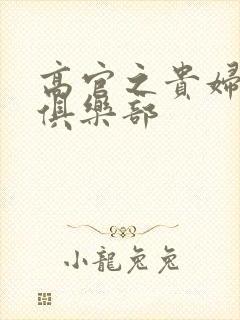 高官之貴婦
俱樂部
小龍兔兔